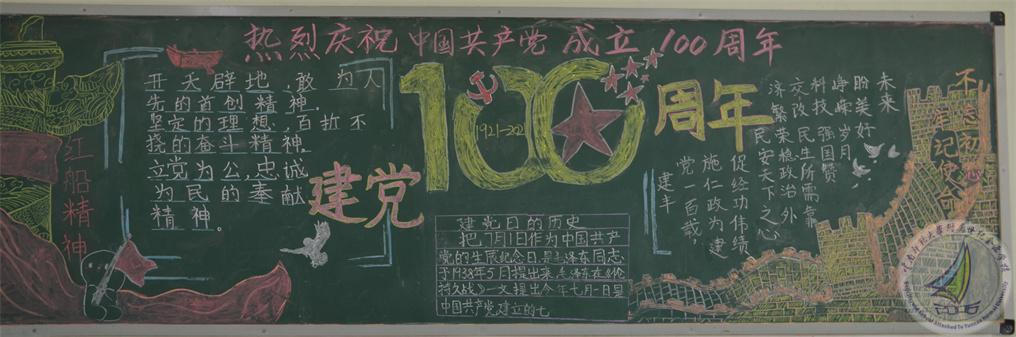 热烈庆祝中国共产党成立100周年
开天辟地,敢为人
先的首创精神,
坚定的理想,百折不
挠的奋斗精神,
立党为公,忠诚
为民的奉献
精神。
红船精神
建党
100
1921-2021
周年
建党日的历史
把7月1日作为中国共产
党的生辰纪念日,是毛泽东同志
于1938年5月提出来,毛泽东在《论
持久战》一文提出今年七月一日是
中国共产党建立的七
未来
盼美好
峥嵘岁月
科技强国赞
交改民生所需靠
济繁荣稳政治外
民安天下之心
促经功伟绩
施仁政为建
党一百载,
建丰
不忘初心
牢记使命